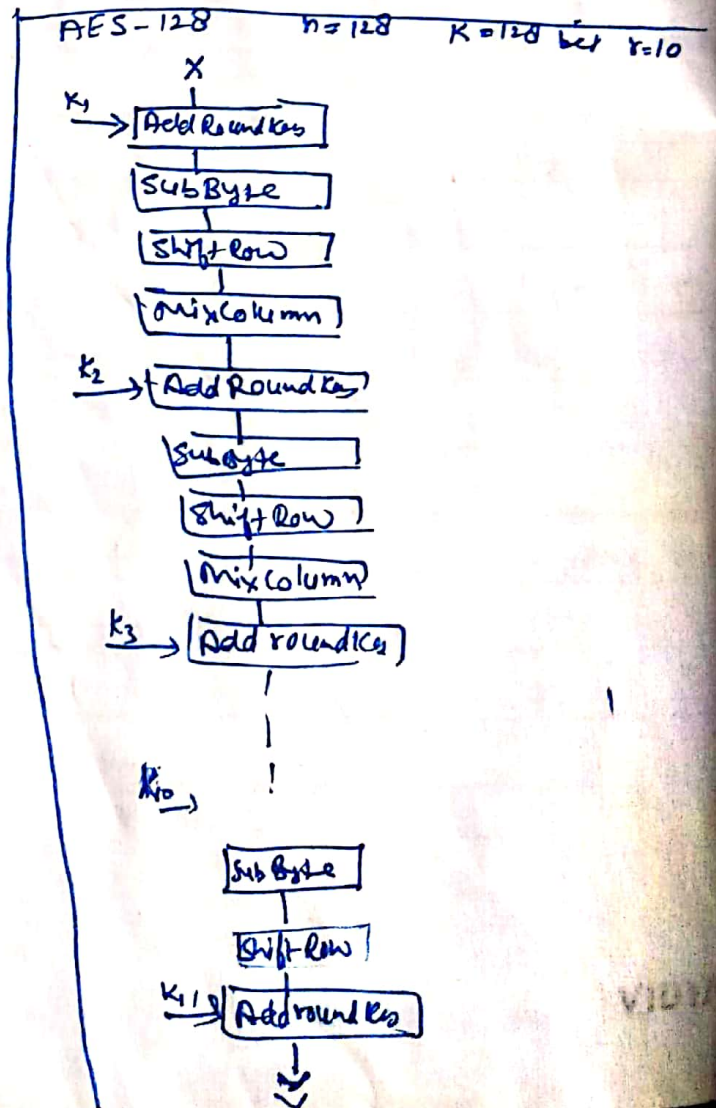 AES-128 n=128 K=128 bit r=10
X
K1
Add Round Key
SubByte
Shift Row
MixColumn
K2
Add Round Key
SubByte
Shift Row
MixColumn
K3
Add round Key
K10
Sub Byte
Shift Row
K11
Add round Key